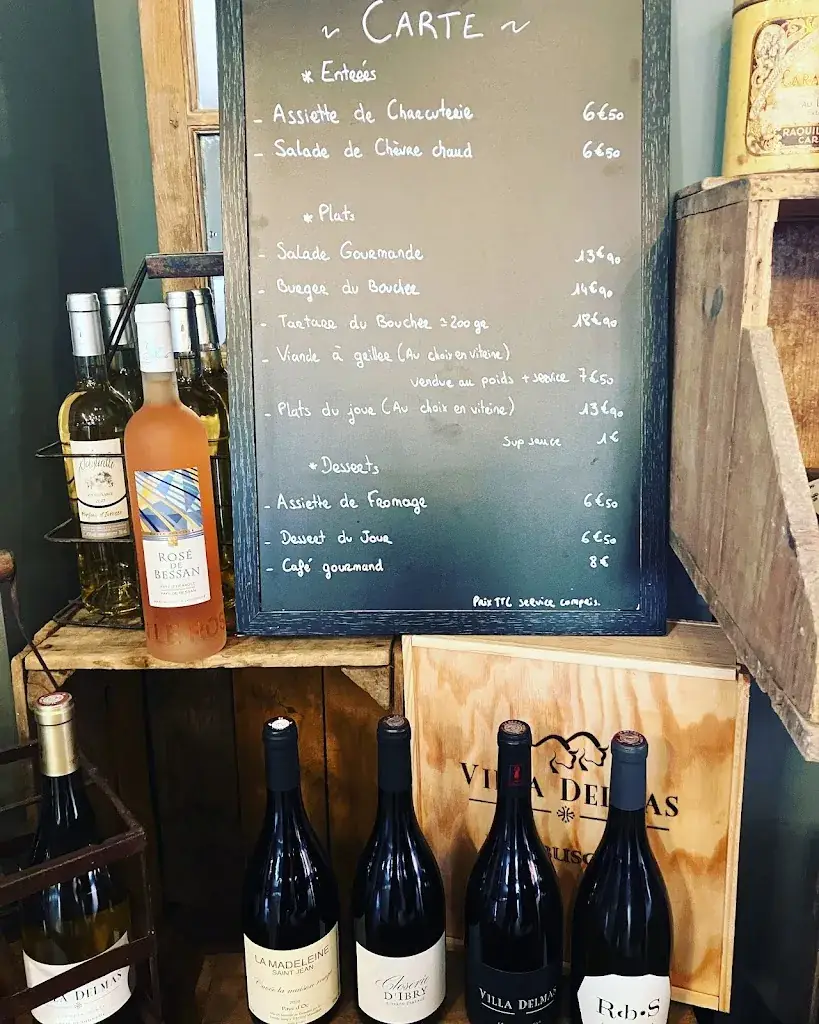 ~ CARTE ~
* Entrées
- Assiette de Charcuterie 6€50
- Salade de Chèvre chaud 6€50
* Plats
- Salade Gourmande 13€90
- Burger du Boucher 14€90
- Tartare du Boucher ≃ 200gr 18€90
- Viande à griller (Au choix en vitrine)
vendue au poids + service 7€50
- Plats du jour (Au choix en vitrine) 13€90
Sup sauce 1€
* Desserts
- Assiette de Fromage 6€50
- Dessert du Jour 6€50
- Café gourmand 8€
Prix TTC service compris.
RAOUL
CAR
ROSÉ
DE
BESSAN
VILLA DELMAS
VILLA DELMAS
LA MADELEINE
SAINT JEAN
Closerie
D'IBRY
VILLA DELMAS
R.b.S